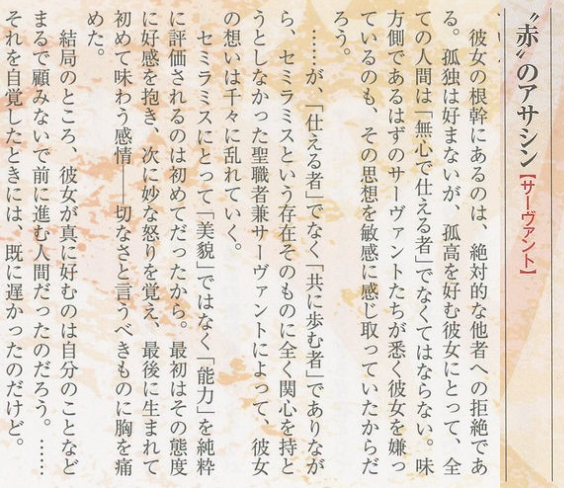 〝赤〟のアサシン【サーヴァント】
彼女の根幹にあるのは、絶対的な他者への拒絶であ
る。孤独は好まないが、孤高を好む彼女にとって、全
ての人間は「無心で仕える者」でなくてはならない。味
方側であるはずのサーヴァントたちが悉く彼女を嫌っ
ているのも、その思想を敏感に感じ取っていたからだ
ろう。
……が、「仕える者」でなく「共に歩む者」でありなが
ら、セミラミスという存在そのものに全く関心を持と
うとしなかった聖職者兼サーヴァントによって、彼女
の想いは千々に乱れていく。
セミラミスにとって「美貌」ではなく「能力」を純粋
に評価されるのは初めてだったから。最初はその態度
に好感を抱き、次に妙な怒りを覚え、最後に生まれて
初めて味わう感情――切なさと言うべきものに胸を痛
めた。
結局のところ、彼女が真に好むのは自分のことなど
まるで顧みないで前に進む人間だったのだろう。……
それを自覚したときには、既に遅かったのだけど。